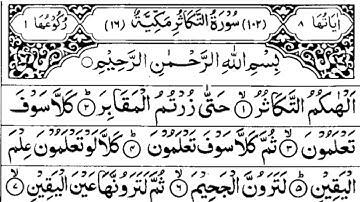 اٰيَاتُهَا ٨ (١٠٢) سُوْرَةُ التَّكَاثُرِ مَكِّيَّةٌ (١٦) رُكُوْعُهَا ١
بِسْمِ اللّٰهِ الرَّحْمٰنِ الرَّحِيْمِ
اَلْهٰىكُمُ التَّكَاثُرُ ۝١ حَتّٰى زُرْتُمُ الْمَقَابِرَ ۝٢ كَلَّا سَوْفَ
تَعْلَمُوْنَ ۝٣ ثُمَّ كَلَّا سَوْفَ تَعْلَمُوْنَ ۝٤ كَلَّا لَوْ تَعْلَمُوْنَ عِلْمَ
الْيَقِيْنِ ۝٥ لَتَرَوُنَّ الْجَحِيْمَ ۝٦ ثُمَّ لَتَرَوُنَّهَا عَيْنَ الْيَقِيْنِ ۝٧